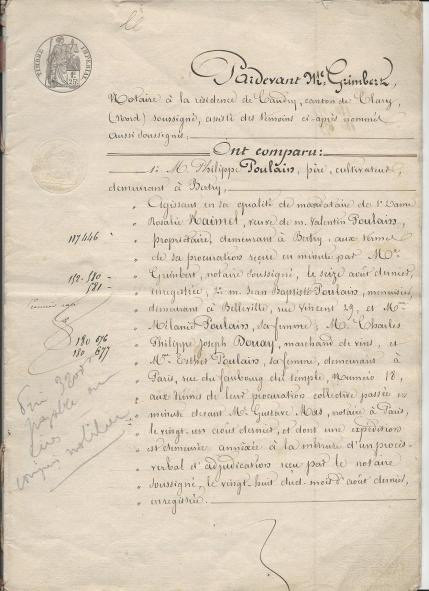 TIMBRE IMPERIAL
Pardevant Me Grimbert,
Notaire à la résidence de Caudry, canton de Clary,
(Nord) soussigné, assisté des témoins ci-après nommés
aussi soussignés,
Ont comparu:
1: M. Philippe Poulain, père, cultivateur,
demeurant à Bertry,
Agissant en sa qualité de mandataire de 1° Dame
Rosalie Haimet, veuve de m. Valentin Poulain,
117446
propriétaire, demeurant à Bertry, aux termes
de sa procuration reçue en minute par Me
152-580
Grimbert, notaire soussigné, le seize août dernier,
581
enregistrée, 2° m. Jean Baptiste Poulain, menuisier,
demeurant à Belleville, rue Vincent 29, et Me
Mélanie Poulain, sa femme; M. Charles
Philippe Joseph Douay, marchand de vins, et
180 676
Me Esther Poulain, sa femme, demeurant à
180 677
Paris, rue du faubourg du temple, Numéro 18,
aux termes de leur procuration collective passée en
minute devant Me Gustave Mas, notaire à Paris,
le vingt-un août dernier, et dont une expédition
est demeurée annexée à la minute d'un procès-
verbal d'adjudication reçu par le notaire
soussigné, le vingt-huit dudit mois d'août dernier,
enregistrée.
payable en